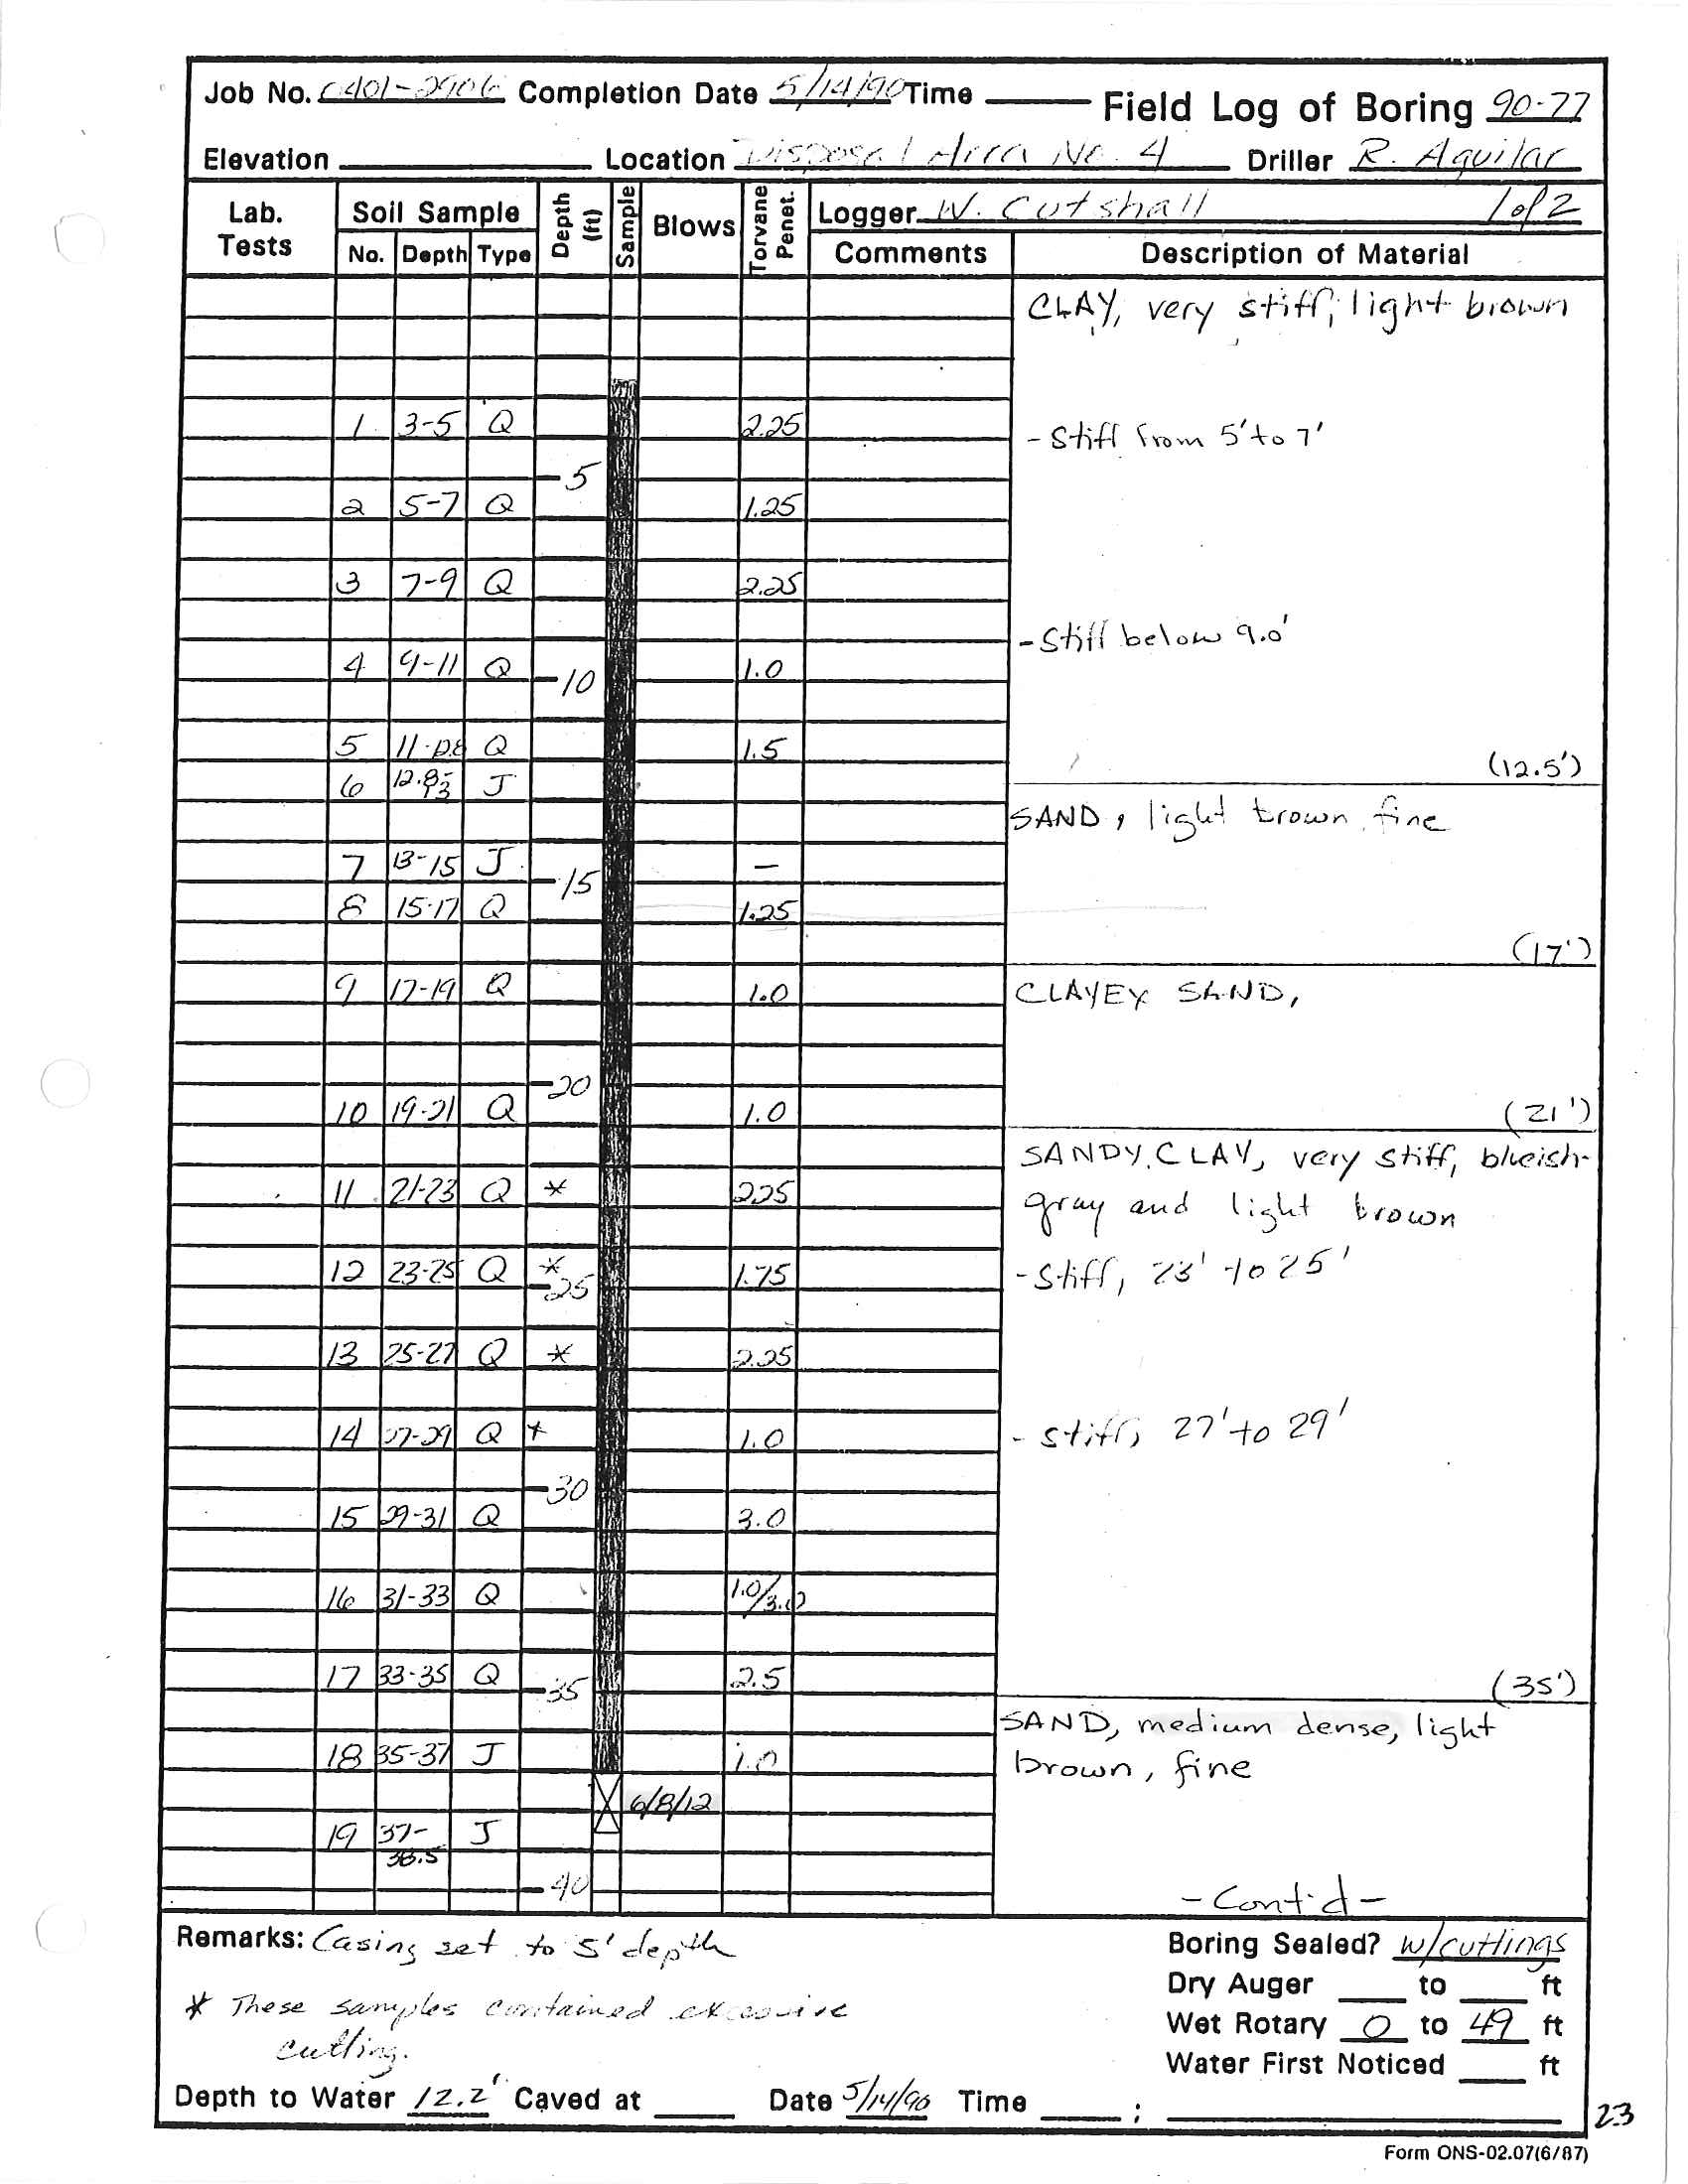 Job No. 0401-2906 Completion Date 5/14/90 Time ____ Field Log of Boring 90-77
Elevation ____ Location Disposal Area No. 4 Driller R. Aguilar
Lab. Tests Soil Sample Depth (ft) Sample Blows Torvane Penet. Logger W. Cutshall 1 of 2
No. Depth Type Comments Description of Material
CLAY, very stiff, light brown
1 3-5 Q 2.25
- Stiff from 5' to 7'
-5
2 5-7 Q 1.25
3 7-9 Q 2.25
- Stiff below 9.0'
4 9-11 Q 1.0
-10
5 11-12.8 Q 1.5
(12.5')
6 12.8-13 J
SAND, light brown, fine
7 13-15 J —
-15
8 15-17 Q 1.25
(17')
9 17-19 Q 1.0
CLAYEY SAND,
-20
10 19-21 Q 1.0
(21')
SANDY CLAY, very stiff, blueish-
11 21-23 Q * 2.25
gray and light brown
12 23-25 Q * 1.75
- Stiff, 23' to 25'
-25
13 25-27 Q * 2.25
14 27-29 Q * 1.0
- stiff, 27' to 29'
-30
15 29-31 Q 3.0
16 31-33 Q 1.0/3.0
17 33-35 Q 2.5
-35
(35')
SAND, medium dense, light
18 35-37 J 1.0
brown, fine
6/8/12
19 37-38.5 J
-40
- Cont'd -
Remarks: Casing set to 5' depth
* These samples contained excessive
cutting.
Boring Sealed? w/cuttings
Dry Auger ____ to ____ ft
Wet Rotary 0 to 49 ft
Water First Noticed ____ ft
Depth to Water 12.2' Caved at ____ Date 5/14/90 Time ____ ; ____
23
Form ONS-02.07(6/87)